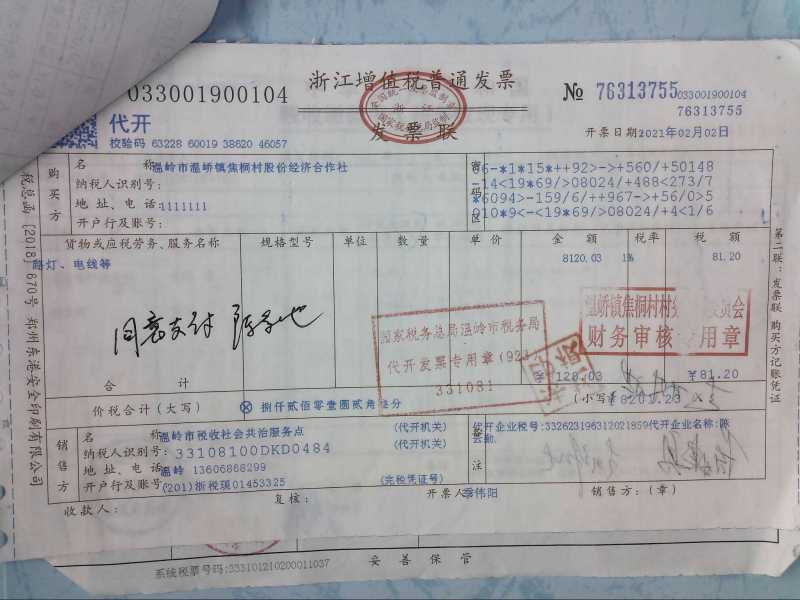 浙江增值税普通发票
033001900104
№ 76313755
033001900104
76313755
代开
发票联
校验码 63228 60019 38620 46057
开票日期2021年02月02日
购买方
名 称 温岭市温峤镇焦桐村股份经济合作社
纳税人识别号:
地址、电话:1111111
开户行及账号:
密码区
6-*1*15*++92>->+560/+50148
-14<19*69/>08024/+488<273/7
*6094>-159/6/++967->+56/0>5
010*9<-<19*69/>08024/+4<1/6
货物或应税劳务、服务名称 规格型号 单位 数量 单价 金额 税率 税额
路灯、电线等 8120.03 1% 81.20
同意支付
国家税务总局温岭市税务局
代开发票专用章(92)
331081
温峤镇焦桐村村
财务审核专用章
合计 ¥81.20
价税合计(大写) ⊗ 捌仟贰佰零壹圆贰角 分 (小写)¥8201.23
销售方
名 称 温岭市税收社会共治服务点 (代开机关)
纳税人识别号:33108100DKD0484 (代开机关)
地址、电话 温岭 13606868299
开户行及账号:(201)浙税现01453325 (完税凭证号)
备注
代开企业税号:332623196312021859代开企业名称:陈
收款人: 复核: 开票人:季伟阳 销售方:(章)
税总函[2018]670号 郑州东港安全印刷有限公司
第二联:发票联 购买方记账凭证
妥善保管
系统税票号码:333101210200011037